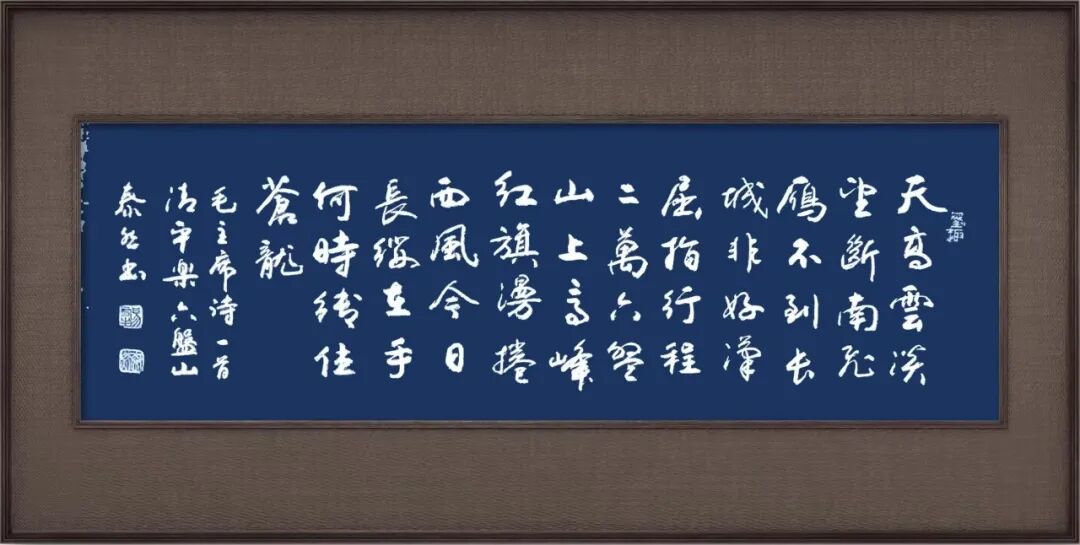 天高雲淡
望斷南飛
鴈不到长
城非好漢
屈指行程
二萬六盤
山上高峰
红旗漫捲
西風今日
長缨在手
何時縛住
蒼龍
毛主席诗一首
清平樂六盤山
泰书